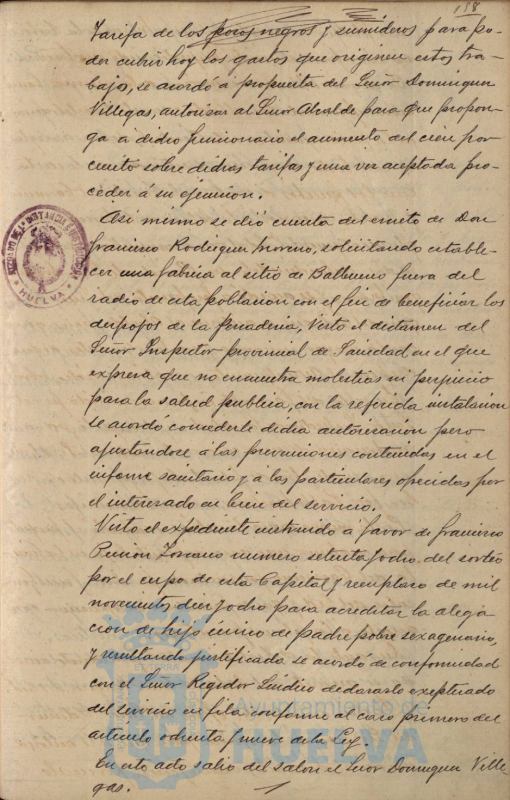 158
Tarifa de los pozos negros y sumideros para po-
der cubrir hoy los gastos que originen estos tra-
bajos, se acordó á propuesta del Señor Dominguez
Villegas, autorizar al Señor Alcalde para que propon-
ga á dicho funcionario el aumento del cien por
ciento sobre dichas tarifas y una vez aceptada pro-
ceder á su ejecucion.
Asi mismo se dió cuenta del escrito de Don
Francisco Rodriguez Moreno, solicitando estable-
cer una fabrica al sitio de Balbueno fuera del
radio de esta poblacion con el fin de beneficiar los
despojos de la ganaderia, Visto el dictamen del
Señor Inspector provincial de Sanidad en el que
expresa que no encuentra molestias ni perjuicio
para la salud publica, con la referida instalacion
se acordó concederle dicha autorizacion pero
ajustandose á las prevenciones contenidas en el
informe sanitario y a las particulares ofrecidas por
el interesado en bien del servicio.
Visto el expediente instruido á favor de Francisco
numero setenta y ocho del sorteo
por el cupo de esta Capital y reemplazo de mil
novecientos diez y ocho para acreditar la alega
cion de hijo único de padre pobre sexagenario,
y resultando justificada se acordó de conformidad
con el Señor Regidor Sindico declararlo exceptuado
del servicio en filas conforme al caso primero del
articulo ochenta y nueve de la Ley.
En este acto salio del salon el Señor Dominguez Ville-
gas.
HUELVA
Ayuntamiento de
HUELVA